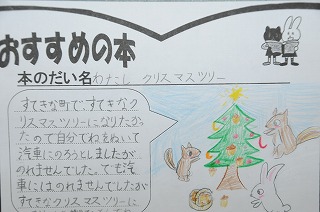 おすすめの本
本のだい名 わたし クリスマスツリー
すてきな町ですてきなク
リスマスツリーになりたかっ
たので自分でねをぬいて
汽車にのろうとしましたが
のれませんでした。でも汽
車にはのれませんでしたが
すてきなクリスマスツリーに